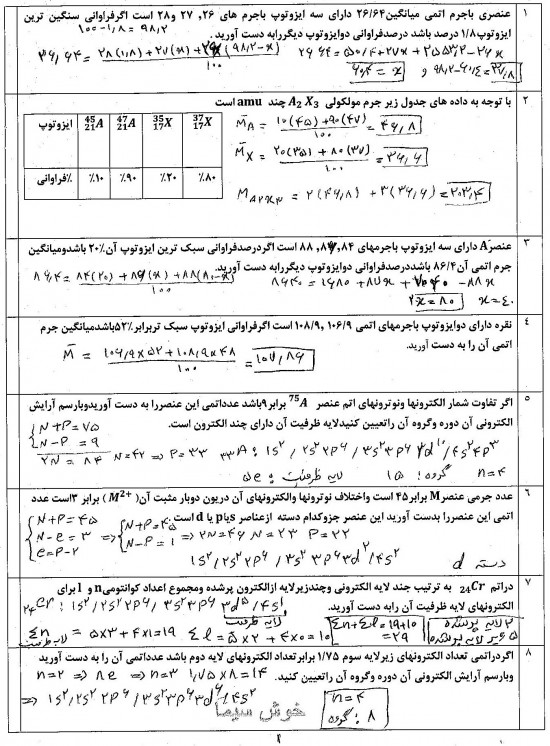 ۱ عنصری باجرم اتمی میانگین۲۶/۶۴ دارای سه ایزوتوپ باجرم های ۲۶, ۲۷ و۲۸ است اگرفراوانی سنگین ترین
ایزوتوپ۱/۸ درصد باشد درصدفراوانی دوایزوتوپ دیگررابه دست آورید. ۱۰۰-۱/۸=۹۸/۲
۲ با توجه به داده های جدول زیر جرم مولکولی A₂ X₃ چند amu است
ایزوتوپ ⁴⁵₂₁A ⁴⁷₂₁A ³⁵₁₇X ³⁷₁₇X
٪فراوانی ٪۱۰ ٪۹۰ ٪۲۰ ٪۸۰
M̄A = ۱۰(۴۵)+۹۰(۴۷) / ۱۰۰ = ۴۶/۸
M̄X = ۲۰(۳۵)+۸۰(۳۷) / ۱۰۰ = ۳۶/۶
MA₂X₃ = ۲(۴۶/۸) + ۳(۳۶/۶) = ۲۰۳/۴
۳ عنصرA دارای سه ایزوتوپ باجرمهای ۸۴, ۸۶, ۸۸ است اگردرصدفراوانی سبک ترین ایزوتوپ آن۲۰٪ باشدومیانگین
جرم اتمی آن۸۶/۴ باشددرصدفراوانی دوایزوتوپ دیگررابه دست آورید.
۴ نقره دارای دوایزوتوپ باجرمهای اتمی ۱۰۶/۹, ۱۰۸/۹ است اگرفراوانی ایزوتوپ سبک تربرابر۵۲٪باشدمیانگین جرم
اتمی آن را به دست آورید.
M̄ = ۱۰۶/۹×۵۲+۱۰۸/۹×۴۸ / ۱۰۰ = ۱۰۷/۸۶
۵ اگر تفاوت شمار الکترونها ونوترونهای اتم عنصر ⁷⁵A برابر۹باشد عدداتمی این عنصررا به دست آوریدوبارسم آرایش
الکترونی آن دوره وگروه آن راتعیین کنیدلایه ظرفیت آن دارای چند الکترون است.
N+P=۷۵
N-P=۹
۲N=۸۴ N=۴۲ => P=۳۳ ₃₃A: 1s²/2s²2p⁶/3s²3p⁶3d¹⁰/4s²4p³
n=۴ گروه: ۱۵ لایه ظرفیت: ۵e
۶ عدد جرمی عنصرM برابر۴۵ است واختلاف نوترونها والکترونهای آن دریون دوبار مثبت آن(M²⁺) برابر ۳است عدد
اتمی این عنصررا بدست آورید این عنصر جزوکدام دسته ازعناصر sیاp یا d است.
N+P=۴۵
N-e=۳
e=P-۲
N+P=۴۵
N-P=۱ => ۲N=۴۶ N=۲۳ P=۲۲
1s²/2s²2p⁶/3s²3p⁶3d²/4s² دسته d
۷ دراتم ₂₄Cr به ترتیب چند لایه الکترونی وچندزیرلایه ازالکترون پرشده ومجموع اعداد کوانتومیn و l برای
الکترونهای لایه ظرفیت آن رابه دست آورید.
₂₄Cr: 1s²/2s²2p⁶/3s²3p⁶3d⁵/4s¹
لایه ظرفیت
Σn = ۵×۳+۴×۱=۱۹ Σl = ۵×۲+۴×۰=۱۰ Σn+Σl=۱۹+۱۰=۲۹
۲ لایه پرشده
۸ اگردراتمی تعداد الکترونهای زیرلایه سوم ۱/۷۵ برابرتعداد الکترونهای لایه دوم باشد عدداتمی آن را به دست آورید
وبارسم آرایش الکترونی آن دوره وگروه آن راتعیین کنید.
n=۲ => ۸e n=۳ ۱/۷۵×۸=۱۴
=> 1s²/2s²2p⁶/3s²3p⁶3d⁶/4s²
n=۴
گروه: ۸
خوش سیما